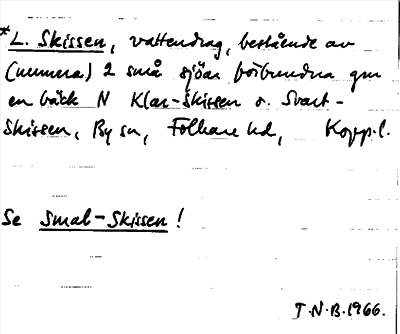 *L. Skissen, vattendrag, bestående av
(numera) 2 små sjöar förbundna gm
en bäck N Klar-Skissen o. Svart-
Skissen, By sn, Folkare hd, Kopp.l.
Se Smal-Skissen!
T.N.B. 1966.